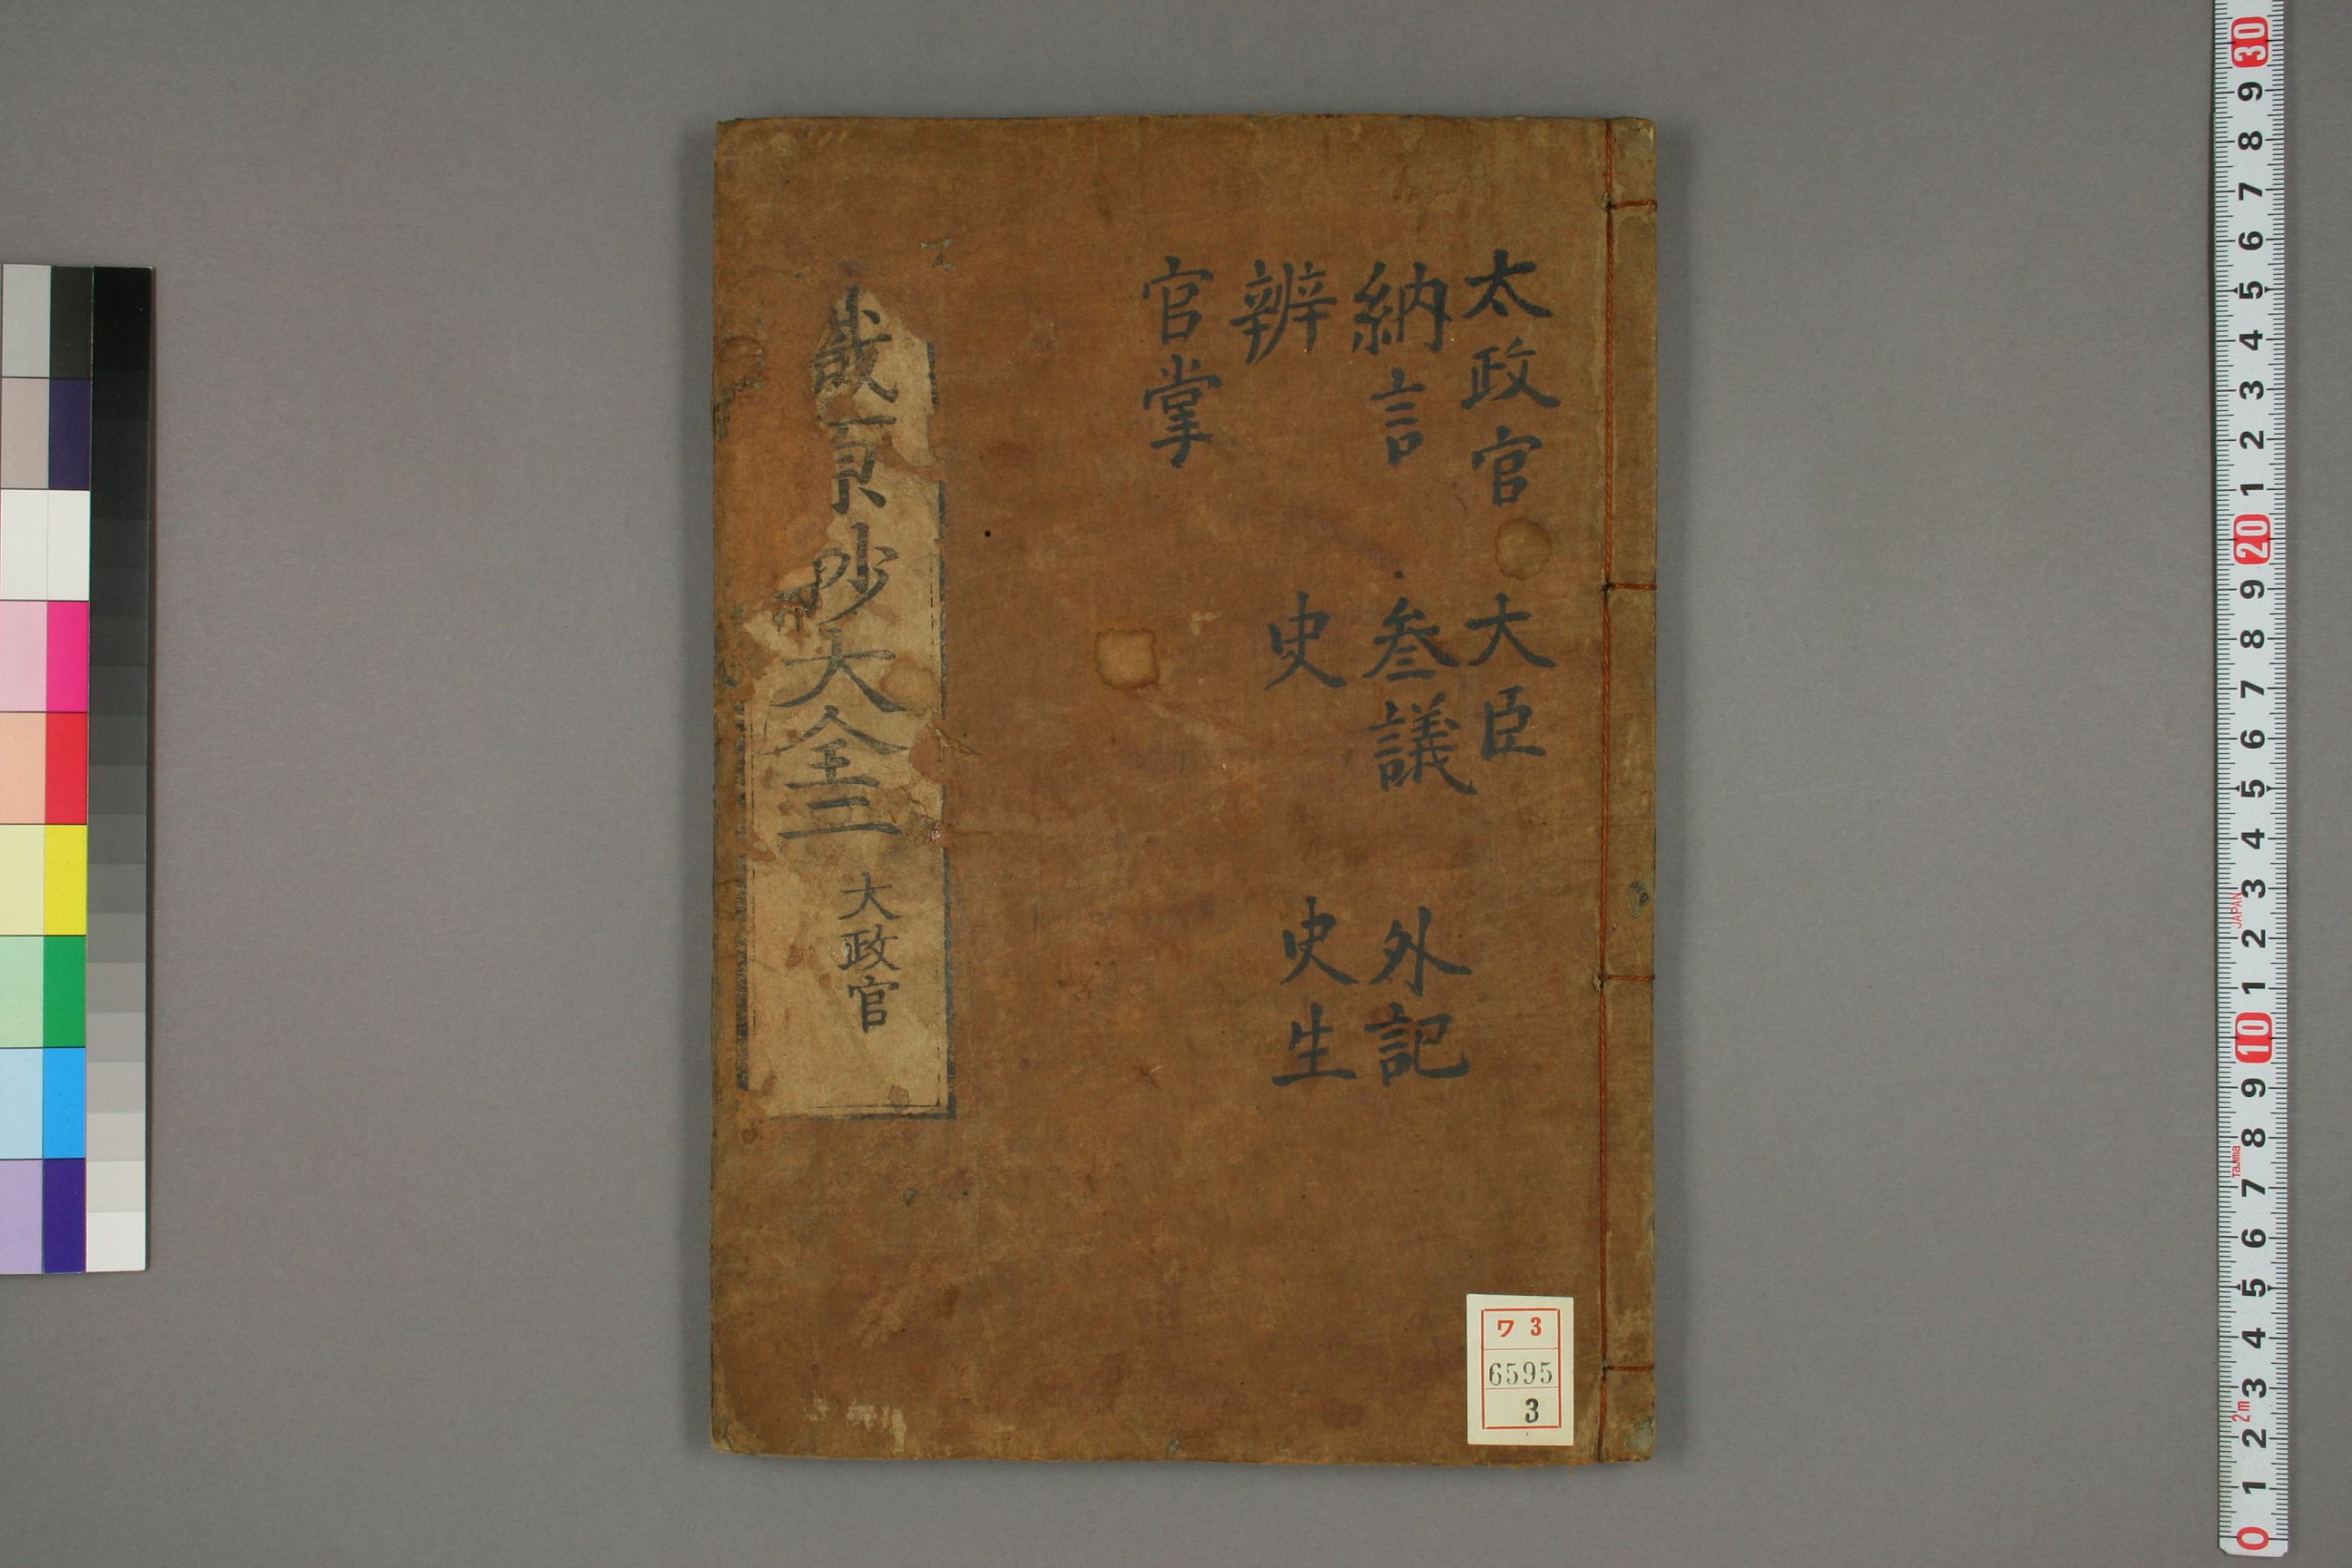 太政官 大臣
納言 叅議 外記
辨 史 史生
官掌
職原抄大全二 大政官
ワ 3
6595
3
30
9
8
7
6
5
4
3
2
1
20
9
8
7
6
5
4
3
2
1
10
9
8
7
6
5
4
3
2
1
0
JAPAN
Tajima
2m